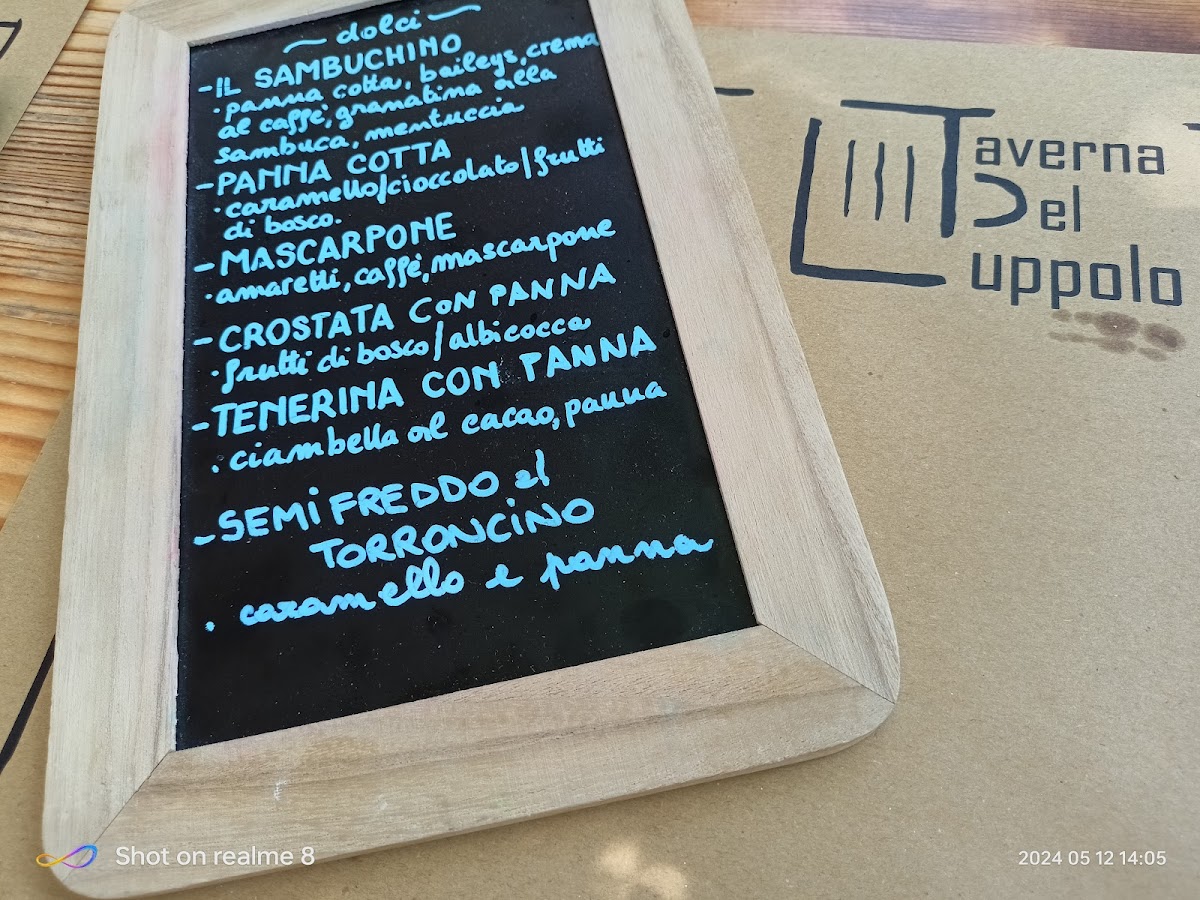 ~ dolci ~
- IL SAMBUCHINO
· panna cotta, baileys, crema
al caffè, granatina alla
sambuca, mentuccia
- PANNA COTTA
· caramello/cioccolato/frutti
di bosco.
- MASCARPONE
· amaretti, caffè, mascarpone
- CROSTATA CON PANNA
· frutti di bosco/albicocca
- TENERINA CON PANNA
· ciambella al cacao, panna
- SEMIFREDDO al
TORRONCINO
· caramello e panna
Taverna
Del
Luppolo
Shot on realme 8
2024 05 12 14:05